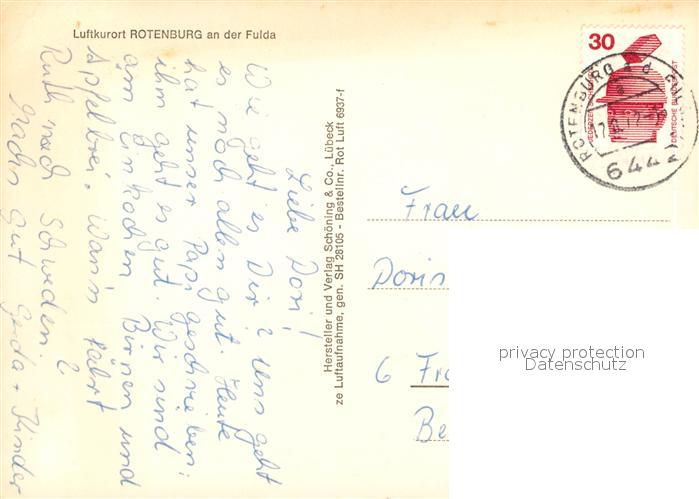 Luftkurort ROTENBURG an der Fulda
Liebe Dori!
Wie geht es Dir? Uns geht
es noch allen gut. Heute
hat unser Papi geschrieben:
ihm geht es gut. Wir sind
am Einkochen, Birnen und
Apfelbrei. Wann fährt
Ruth nach Schweden?
Machs gut Gerda + Kinder
Hersteller und Verlag Schöning & Co., Lübeck
ze Luftaufnahme, gen. SH 28105 - Bestellnr. Rot Luft 6937-f
30
JEDERZEIT
DEUTSCHE BUNDESPOST
ROTENBURG a d
6442
Frau
Doris
6 Fra
Be
privacy protection
Datenschutz